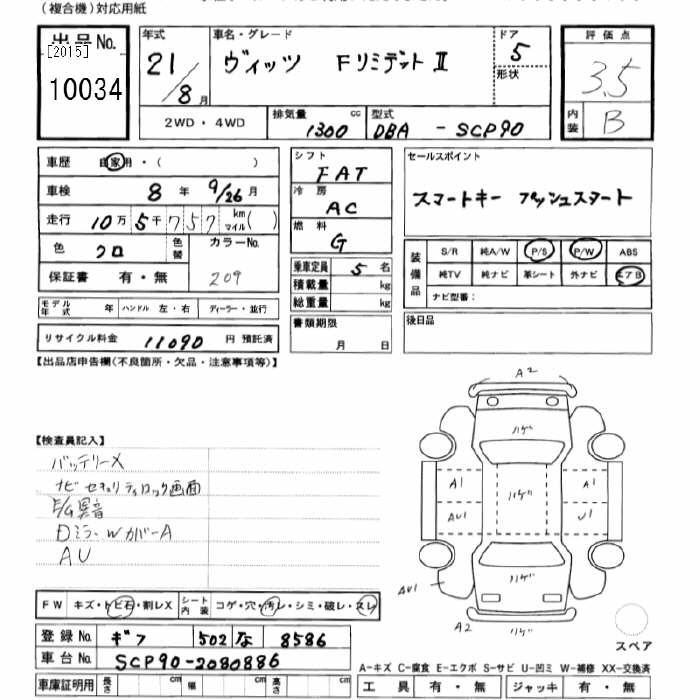 (複合機)対応用紙
出品No.
[2015]
10034
年式 21/8月
車名・グレード
ヴィッツ FリミテッドⅡ
ドア 5
形状
2WD・4WD
排気量 1300 cc
型式 DBA - SCP90
評価点
3.5
内装 B
車歴 自家用・( )
車検 8年 9/26月
走行 10万5千757 km マイル( )
色 クロ
色替
カラーNo. 209
保証書 有・無
モデル年式 年 ハンドル 左・右 ディーラー・並行
リサイクル料金 11090 円 預託済
シフト FAT
冷房 AC
燃料 G
乗車定員 5名
積載量 kg
総重量 kg
書類期限
月 日
セールスポイント
スマートキー プッシュスタート
装備品
S/R 純A/W P/S P/W ABS
純TV 純ナビ 革シート 外ナビ エアB
ナビ型番:
後日品
【出品店申告欄(不良箇所・欠品・注意事項等)】
【検査員記入】
バッテリーX
ナビセキュリティロック画面
E/G異音
Dミラー・WカバーA
AU
A2
ハゲ
A1
ハゲ
A1
AU1
U1
ハゲ
AU1
A2
ハゲ
スペア
FW キズ・トビ石・割レX
シート内装 コゲ・穴・汚レ・シミ・破レ・スレ
登録No. ギフ 502 な 8586
車台No. SCP90-2080886
車庫証明用 長さ cm 幅 cm 高さ cm
A-キズ C-腐食 E-エクボ S-サビ U-凹ミ W-補修 XX-交換済
工具 有・無 ジャッキ 有・無